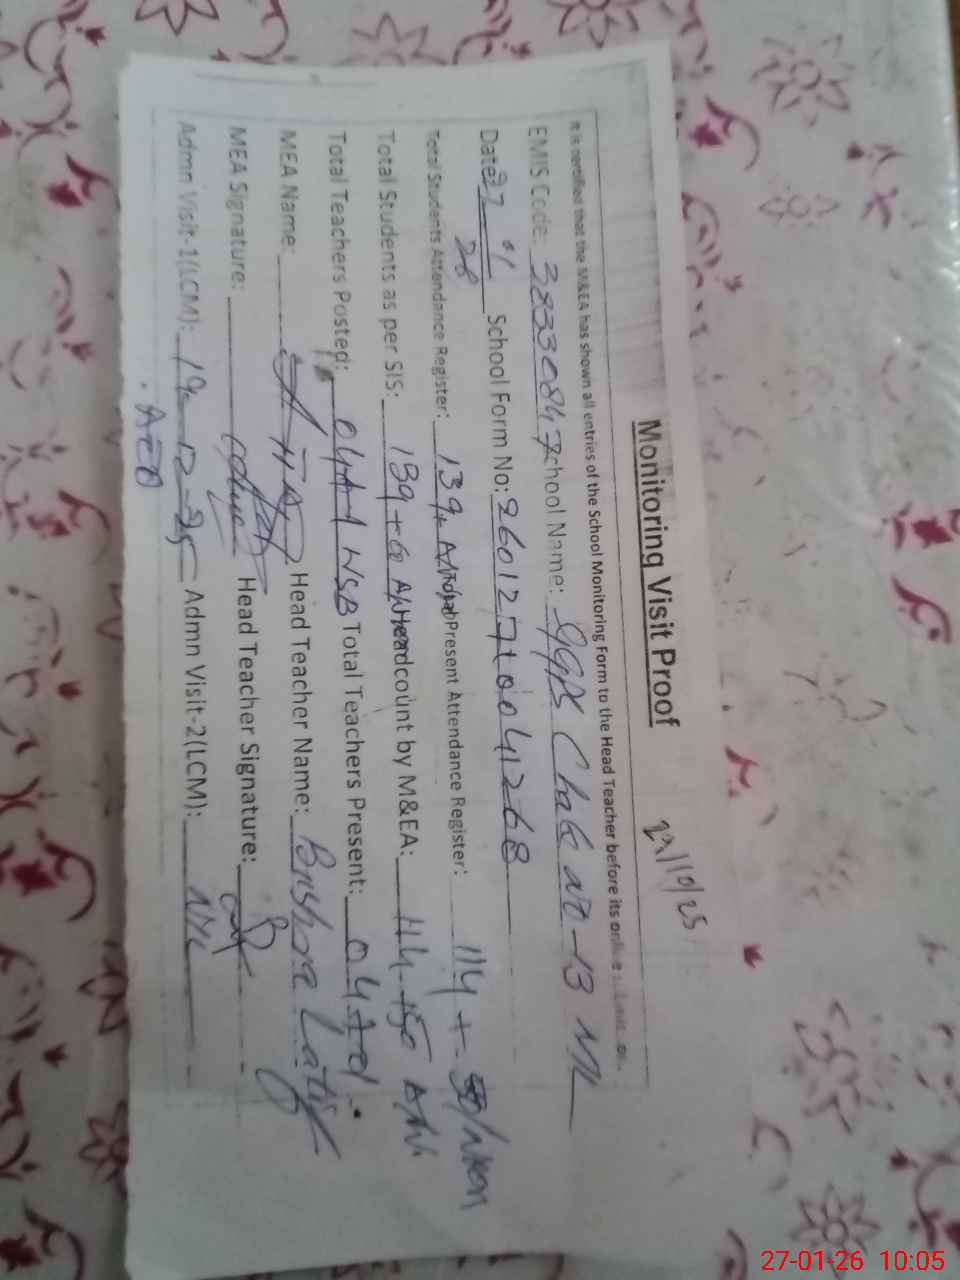 29/10/25
Monitoring Visit Proof
It is certified that the M&EA has shown all entries of the School Monitoring Form to the Head Teacher before its online
EMIS Code: 38330847 School Name: GGPS Chak no-13 ML
Date: 27 01 26 School Form No: 2601277004268
Total Students Attendance Register: 139+ Total Present Attendance Register: 114+
Total Students as per SIS: 139+60 A/N Headcount by M&EA: 114+50 A/N
Total Teachers Posted: 04+1 NSB Total Teachers Present: 04+01
MEA Name: Head Teacher Name: Bushra Latif
MEA Signature: Head Teacher Signature:
Admn Visit-1(LCM): 19-12-25 Admn Visit-2(LCM): Nil
AEO
27-01-26 10:05